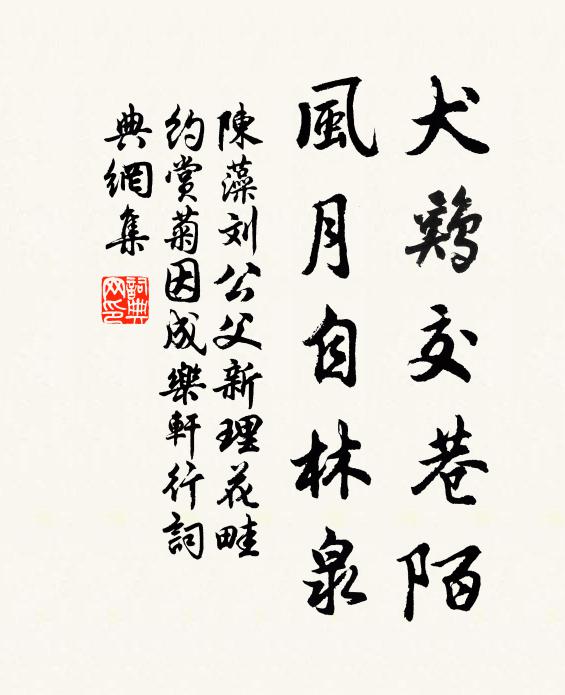 犬鷄交巷陌
風月自林泉
陳藻刘公父新理花畦
約賞菊因成樂軒行詞
典網集
詞典網印